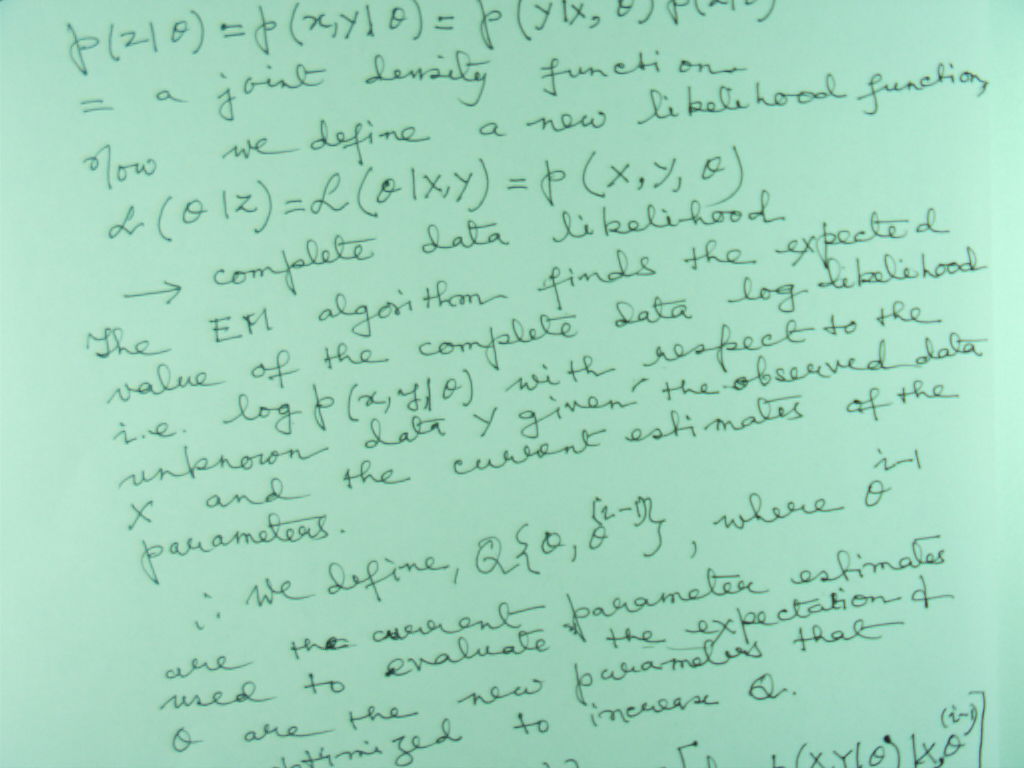 p(z|θ) = p(x,y|θ) = p(y|x, θ) p(x|θ)
= a joint density function
Now we define a new likelihood function,
ℒ(θ|z) = ℒ(θ|X,Y) = p(X,Y,θ)
→ complete data likelihood
The EM algorithm finds the expected
value of the complete data log likelihood
i.e. log p(x,y|θ) with respect to the
unknown data Y given the observed data
X and the current estimates of the
parameters.
∴ We define, Q{θ, θ^(i-1)}, where θ^i-1
are the current parameter estimates
used to evaluate the expectation &
θ are the new parameters that
optimized to increase Q.
p(X,Y|θ)|X,θ^(i-1)]